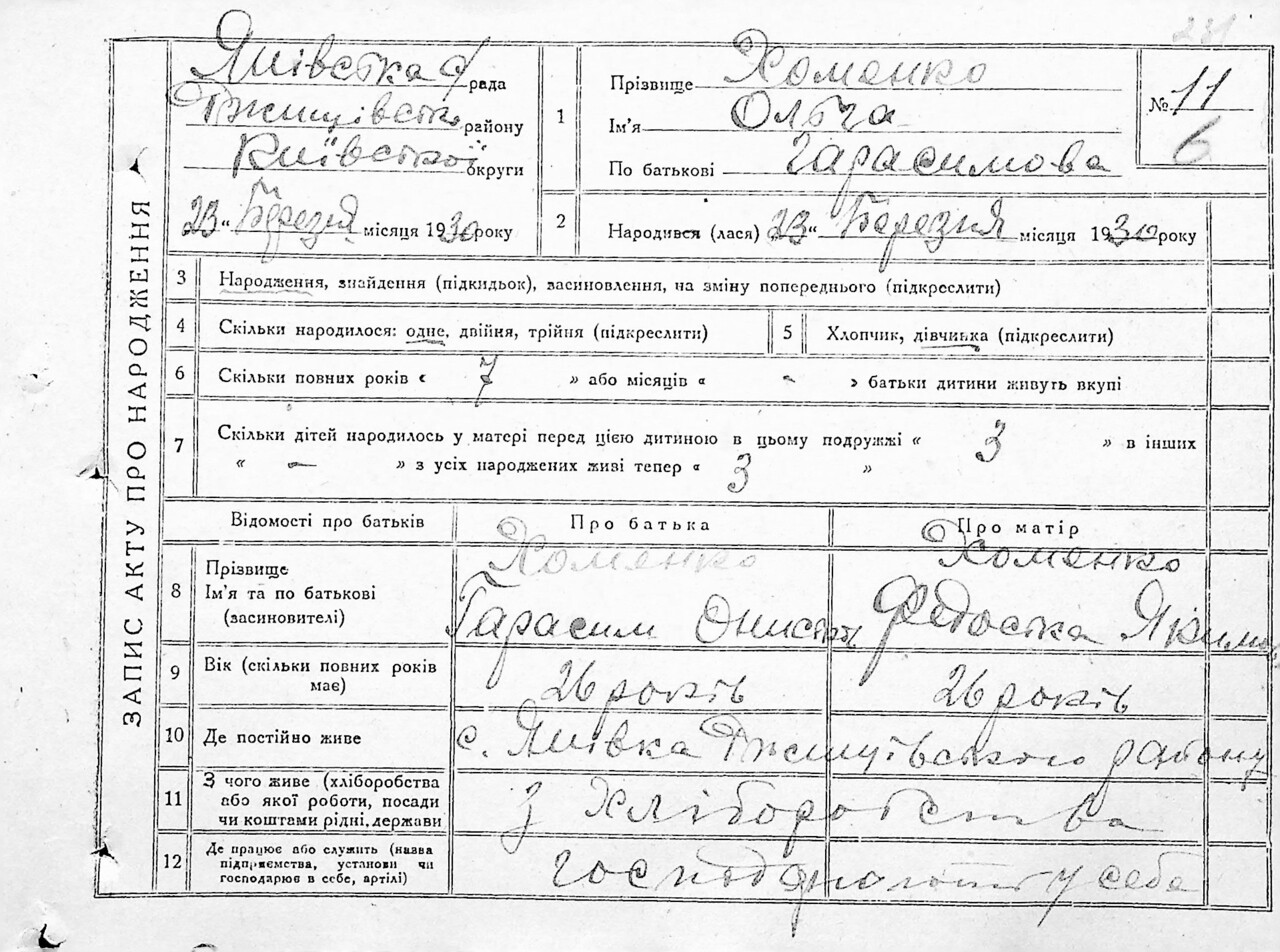 231
ЗАПИС АКТУ ПРО НАРОДЖЕННЯ
Яшівська с/рада
Ржищівськ району
Київської округи
23 „ Березня місяця 1930 року
1
Прізвище Хоменко
Ім'я Ольга
По батькові Гарасимова
№ 11
6
2
Народився (лася) 23 „ Березня місяця 1930 року
3 Народження, знайдення (підкидьок), засиновлення, на зміну попереднього (підкреслити)
4 Скільки народилося: одне, двійня, трійня (підкреслити)
5 Хлопчик, дівчинка (підкреслити)
6 Скільки повних років « 7 » або місяців « - » батьки дитини живуть вкупі
7 Скільки дітей народилось у матері перед цією дитиною в цьому подружжі « 3 » в інших
« — » з усіх народжених живі тепер « 3 »
Відомості про батьків Про батька Про матір
8 Прізвище
Ім'я та по батькові
(засиновителі)
Хоменко
Гарасим
Хоменко
Федоська Якимов
9 Вік (скільки повних років
має)
26 років
26 років
10 Де постійно живе
с. Яшівка Ржищівського району
11 З чого живе (хліборобства
або якої роботи, посади
чи коштами рідні, держави
з хліборобства
12 Де працює або служить (назва
підприємства, установи чи
господарює в себе, артілі)
у себе